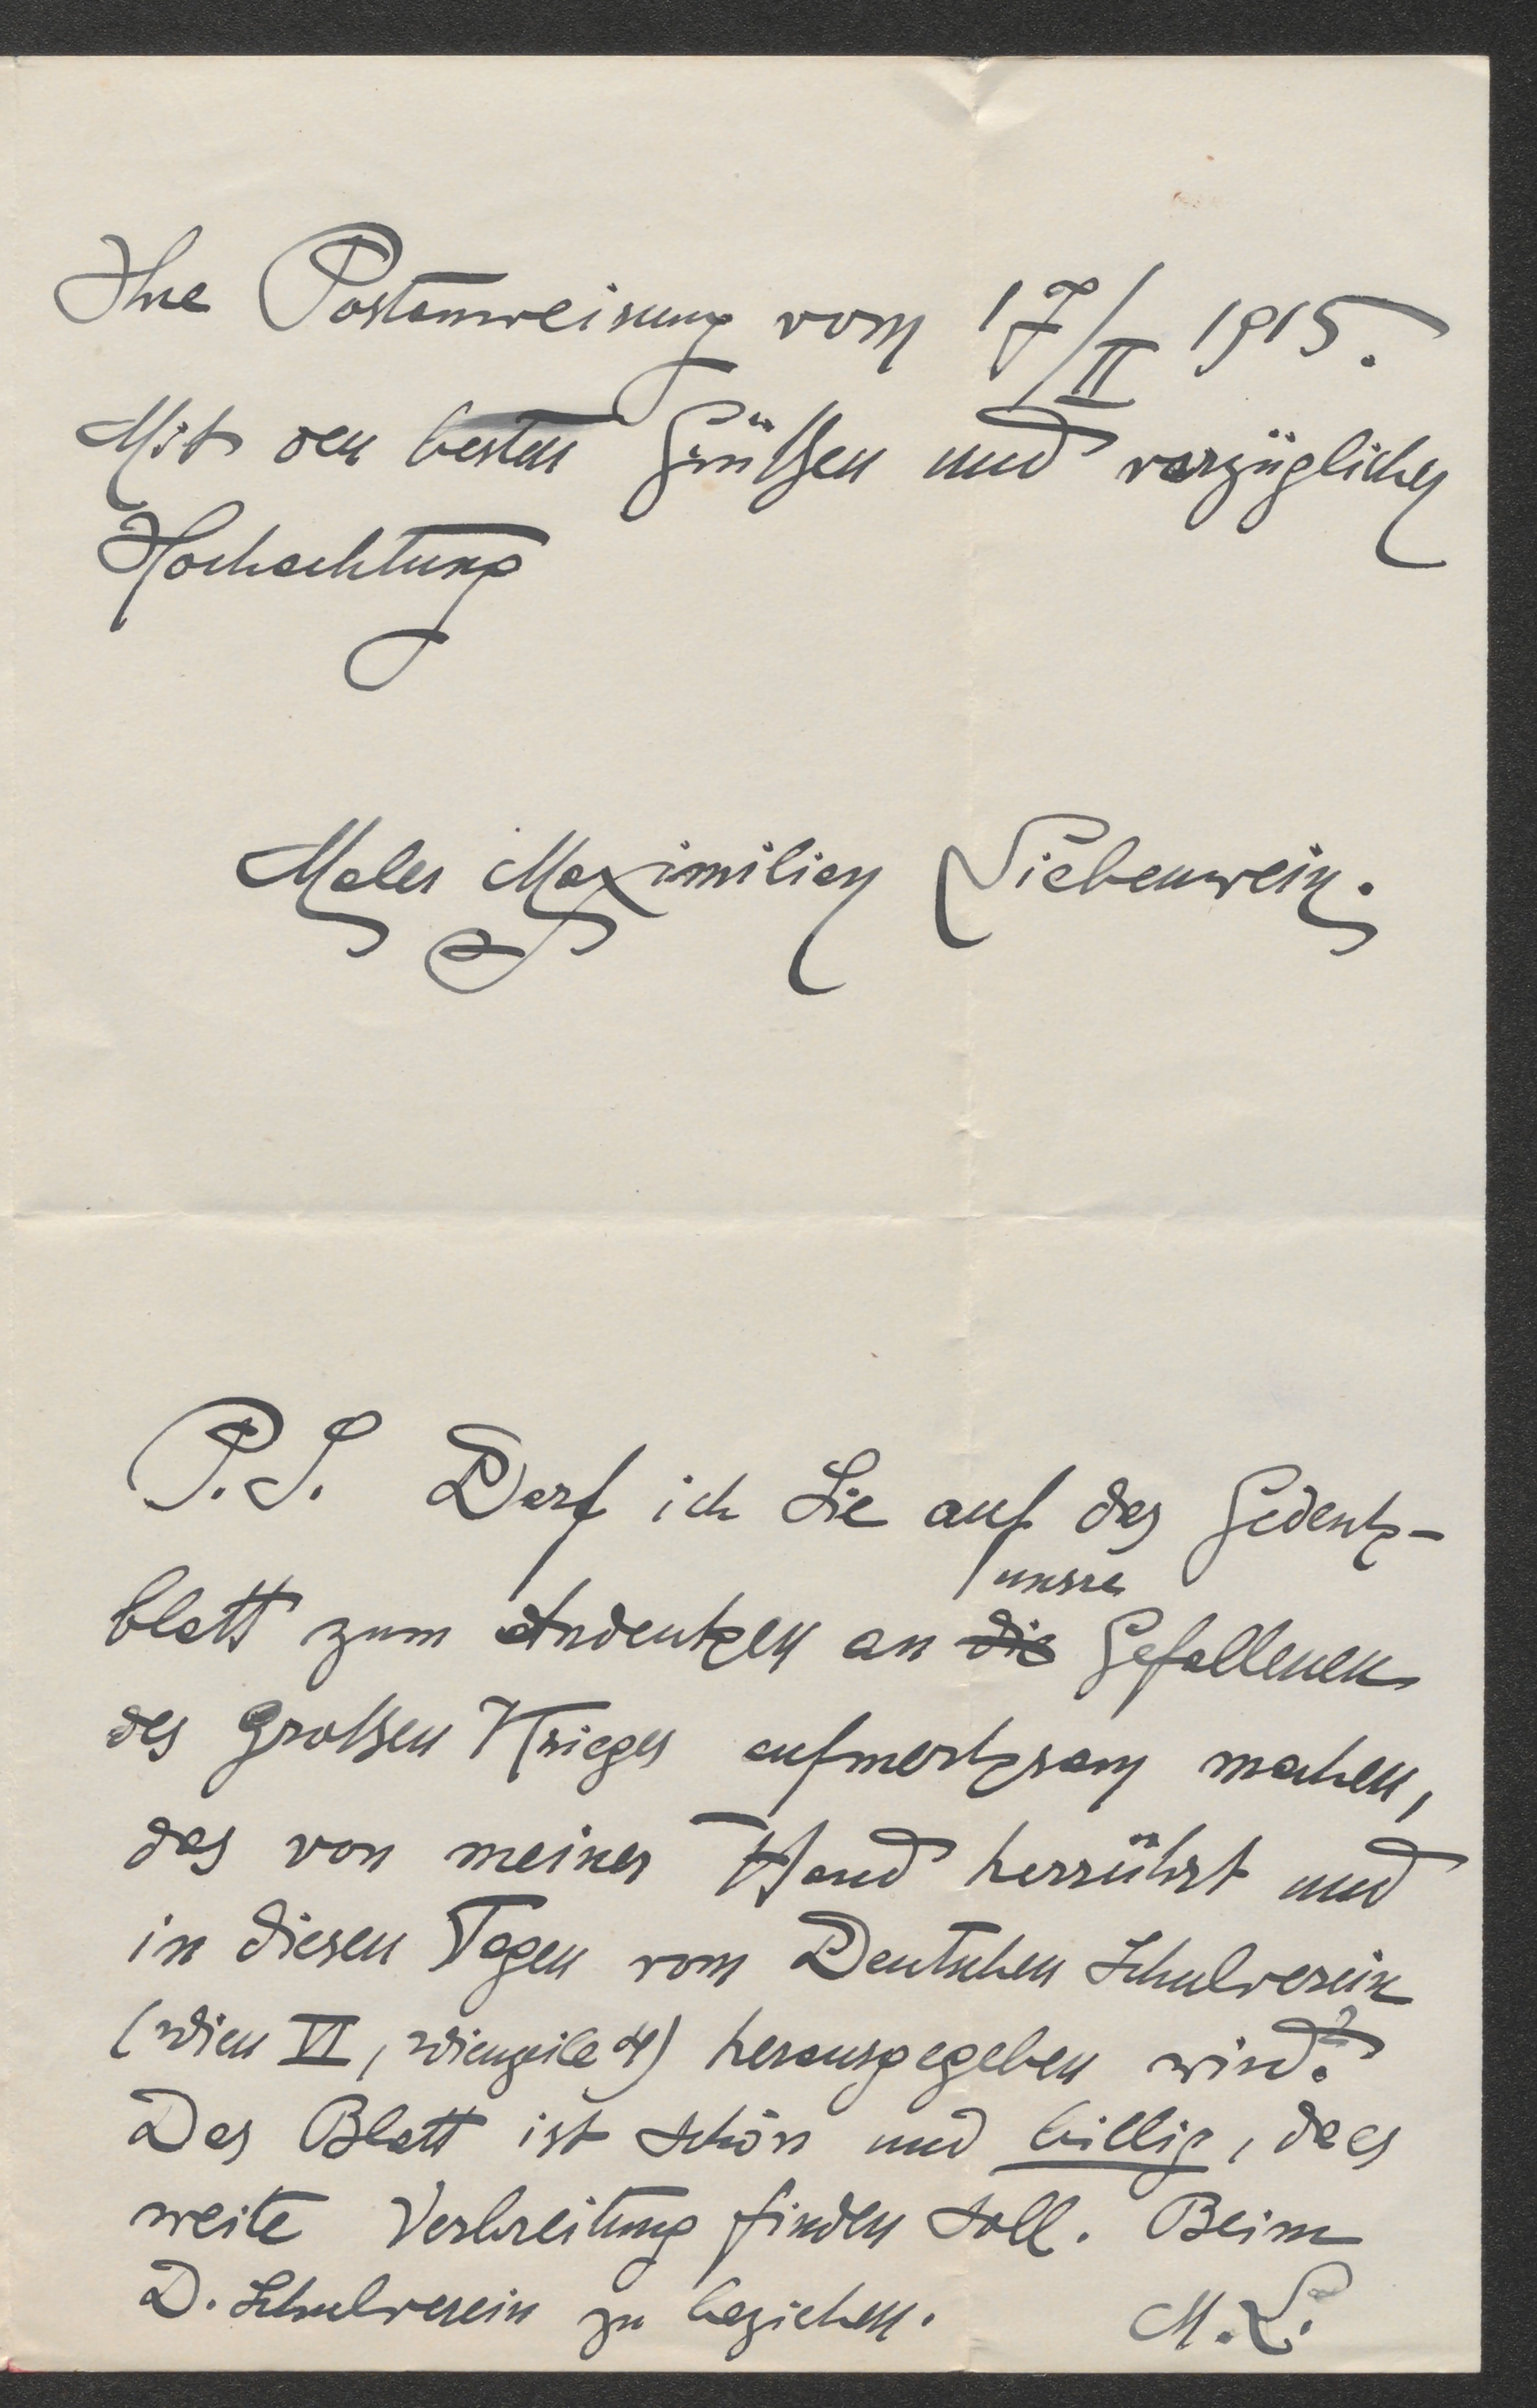 Ihre Postanweisung vom 17/II 1915.
Mit den besten Grüßen und vorzüglicher
Hochachtung
Maler Maximilian Liebenwein.
P.S. Darf ich Sie auf das Gedenk-
blatt zum Andenken an die unsre Gefallenen
des großen Krieges aufmerksam machen,
das von meiner Hand herrührt und
in diesen Tagen vom Deutschen Schulverein
(Wien VI, Wienzeile 4) herausgegeben wird?
Das Blatt ist schön und billig, da es
weite Verbreitung finden soll. Beim
D. Schulverein zu beziehen. M.L.